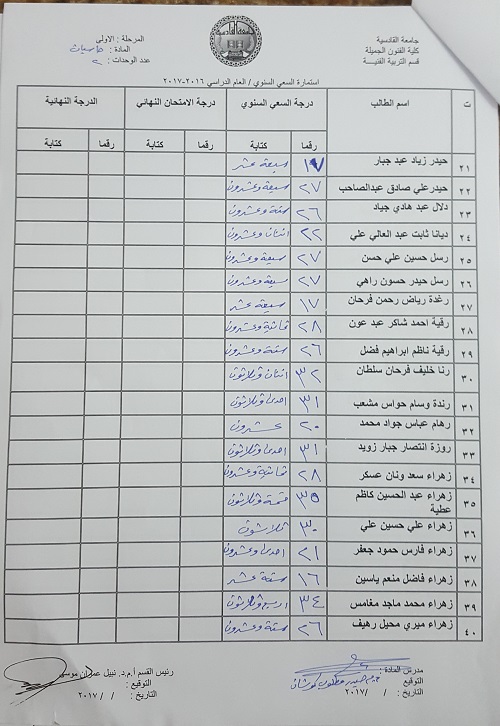 جامعة القادسية
كلية الفنون الجميلة
قسم التربية الفنية
المرحلة : الاولى
المادة : حاسبات
عدد الوحدات : ٢
استمارة السعي السنوي / العام الدراسي ٢٠١٦-٢٠١٧
ت اسم الطالب درجة السعي السنوي درجة الامتحان النهائي الدرجة النهائية
رقما كتابة رقما كتابة رقما كتابة
٢١ حيدر زياد عبد جبار ١٧ سبعة عشر
٢٢ حيدر علي صادق عبدالصاحب ٢٧ سبعة وعشرون
٢٣ دلال عبد هادي جياد ٢٦ ستة وعشرون
٢٤ ديانا ثابت عبد العالي علي ٢٢ اثنان وعشرون
٢٥ رسل حسين علي حسن ٢٧ سبعة وعشرون
٢٦ رسل حيدر حسون راهي ٢٧ سبعة وعشرون
٢٧ رغدة رياض رحمن فرحان ١٧ سبعة عشر
٢٨ رقية احمد شاكر عبد عون ٢٨ ثمانية وعشرون
٢٩ رقية ناظم ابراهيم فضل ٢٦ ستة وعشرون
٣٠ رنا خليف فرحان سلطان ٣٢ اثنان وثلاثون
٣١ رندة وسام حواس مشعب ٣١ احدى وثلاثون
٣٢ رهام عباس جواد محمد ٢٠ عشرون
٣٣ روزة انتصار جبار زويد ٣١ احدى وثلاثون
٣٤ زهراء سعد ونان عسكر ٢٨ ثمانية وعشرون
٣٥ زهراء عبد الحسين كاظم عطية ٣٥ خمسة وثلاثون
٣٦ زهراء علي حسين علي ٣٠ ثلاثون
٣٧ زهراء فارس حمود جعفر ٢١ احدى وعشرون
٣٨ زهراء فاضل منعم ياسين ١٦ ستة عشر
٣٩ زهراء محمد ماجد مغامس ٣٤ اربع وثلاثون
٤٠ زهراء ميري محيل رهيف ٢٦ ستة وعشرون
مدرس المادة :
التوقيع
التاريخ : / / ٢٠١٧
رئيس القسم أ.م.د. نبيل عمران موسى
التوقيع :
التاريخ : / / ٢٠١٧